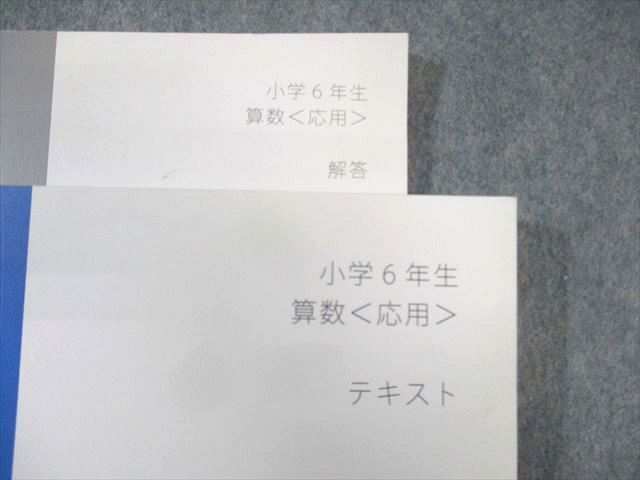 小学6年生
算数<応用>
解答
小学6年生
算数<応用>
テキスト